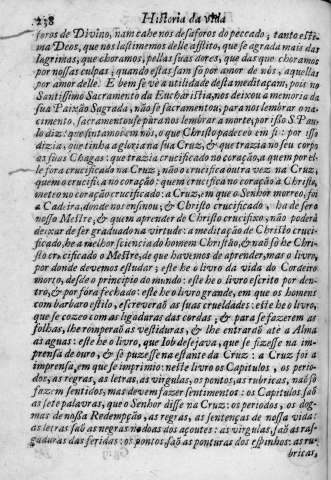 238 Historia da vida
foros de Divino, nam cahe nos desaforos do peccado; tanto estima
Deos, que nos lastimemos delle afflito, que se agrada mais das
lagrimas, que choramos, pellas suas dores, que das que choramos
por nossas culpas; quando estas sam só por amor de nós, aquellas
por amor delle. E bem se ve a utilidade desta meditaçam, pois no
Santissimo Sacramento da Eucharistia, nos deixou a memoria da
sua Paixão Sagrada, não se sacramentou, para nos lembrar o nacimento,
sacramentouse para nos lembrar a morte; por isso S. Paulo
diz: que sintamos em nòs, o que Christo padeceo em si: por isso
dizia, que tinha a gloria na sua Cruz, & que trazia no seu corpo
as suas Chagas: que trazia crucificado no coração, a quem por elle
fora crucificado na Cruz; não o crucifica outra vez na Cruz,
quem o crucifica no coração: quem crucifica no coração a Christo,
mete o no coração crucificado: a Cruz, em que o Senhor morreo, foi
a Cadeira, donde nos ensinou; & Christo crucificado, ha de ser o
nosso Mestre, & quem aprender de Christo crucifixo, não poderà
deixar de ser graduado na virtude: a meditação de Christo crucificado,
he a melhor sciencia do homem Christão, & naõ só he Christo
crucificado o Mestre, de que havemos de aprender, mas o livro,
por donde devemos estudar; este he o livro da vida do Cordeiro
morto, desde o principio do mundo: este he o livro escrito por dentro,
& por fóra fechado: este he o livro grande, em que os homens
com barbaro estilo, escreveraõ as suas crueldades: este he o livro,
que se cozeo com as ligaduras das cordas, & para se fazerem as
folhas, lhe romperaõ as vestiduras, & lhe entraraõ até a Alma
as aguas: este he o livro, que Iob desejava, que se fizesse na imprensa
de ouro, & se puzesse na estante da Cruz: a Cruz foi a
imprensa, em que se imprimio: neste livro os Capitulos, os periodos,
as regras, as letras, as virgulas, os pontos, as rubricas, naõ só
fazem sentidos, mas devem fazer sentimentos: os Capitulos, saõ
as sete palavras, que o Senhor disse na Cruz: os periodos, os dogmas
de nossa Redempção, as regras, as sentenças de nossa vida:
as letras saõ as negras nodoas dos açoutes: as virgulas, saõ as rasgaduras
das feridas: os pontos, saõ as ponturas dos espinhos: as rubricas,